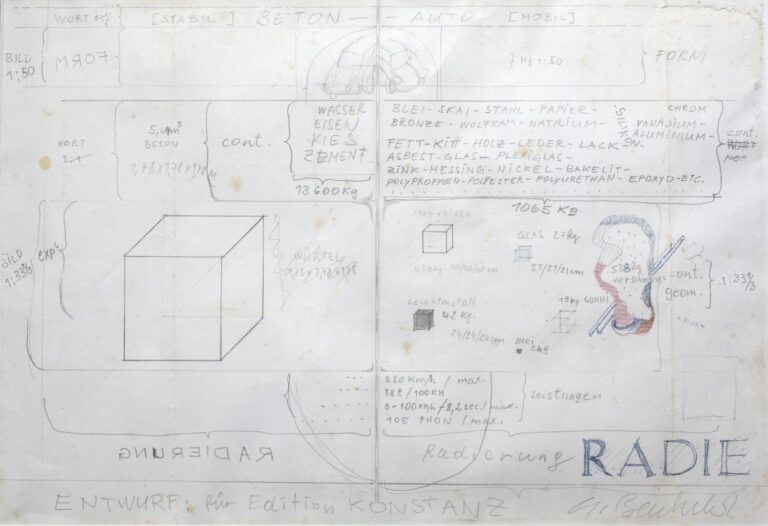 WORT [STABIL] BETON — AUTO [MOBIL]
BILD 1:50
FORM
1:50
FORM
WORT
5, m³
BETON
cont.
WASSER
EISEN
KIES
ZEMENT
13600Kg
BLEI - SKAI - STAHL - PAPIER - CHROM
BRONZE - WOLFRAM - NATRIUM - SILIKON - VANADIUM -
ALUMINIUM -
FETT - KITT - HOLZ - LEDER - LACK
ASBEST - GLAS - PLEXIGLAS -
ZINK - MESSING - NICKEL - BAKELIT -
POLYPROPYLEN - POLYESTER - POLYURETHAN - EPOXYD - ETC.
cont.
BILD
1:33⅓
expl.
WÜRFEL
1065 Kg.
STAHL + EISEN
450kg 40/40/40cm
GLAS 27kg
27/27/21cm
Leichtmetall
42 Kg.
24/24/24cm
19kg GUMMI
Blei
24g
528
cont.
geom.
1:33⅓
220 Km/h / max.
18l / 100 KM
0-100 km/h / 8,2 sec. / max.
105 PHON / max.
Leistungen
RADIERUNG
Radierung
RADIE
ENTWURF: für Edition KONSTANZ